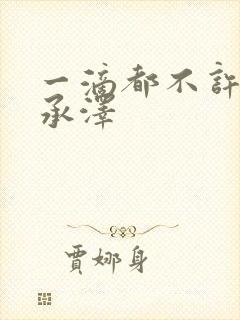 一滴都不許
承澤
賈娜身